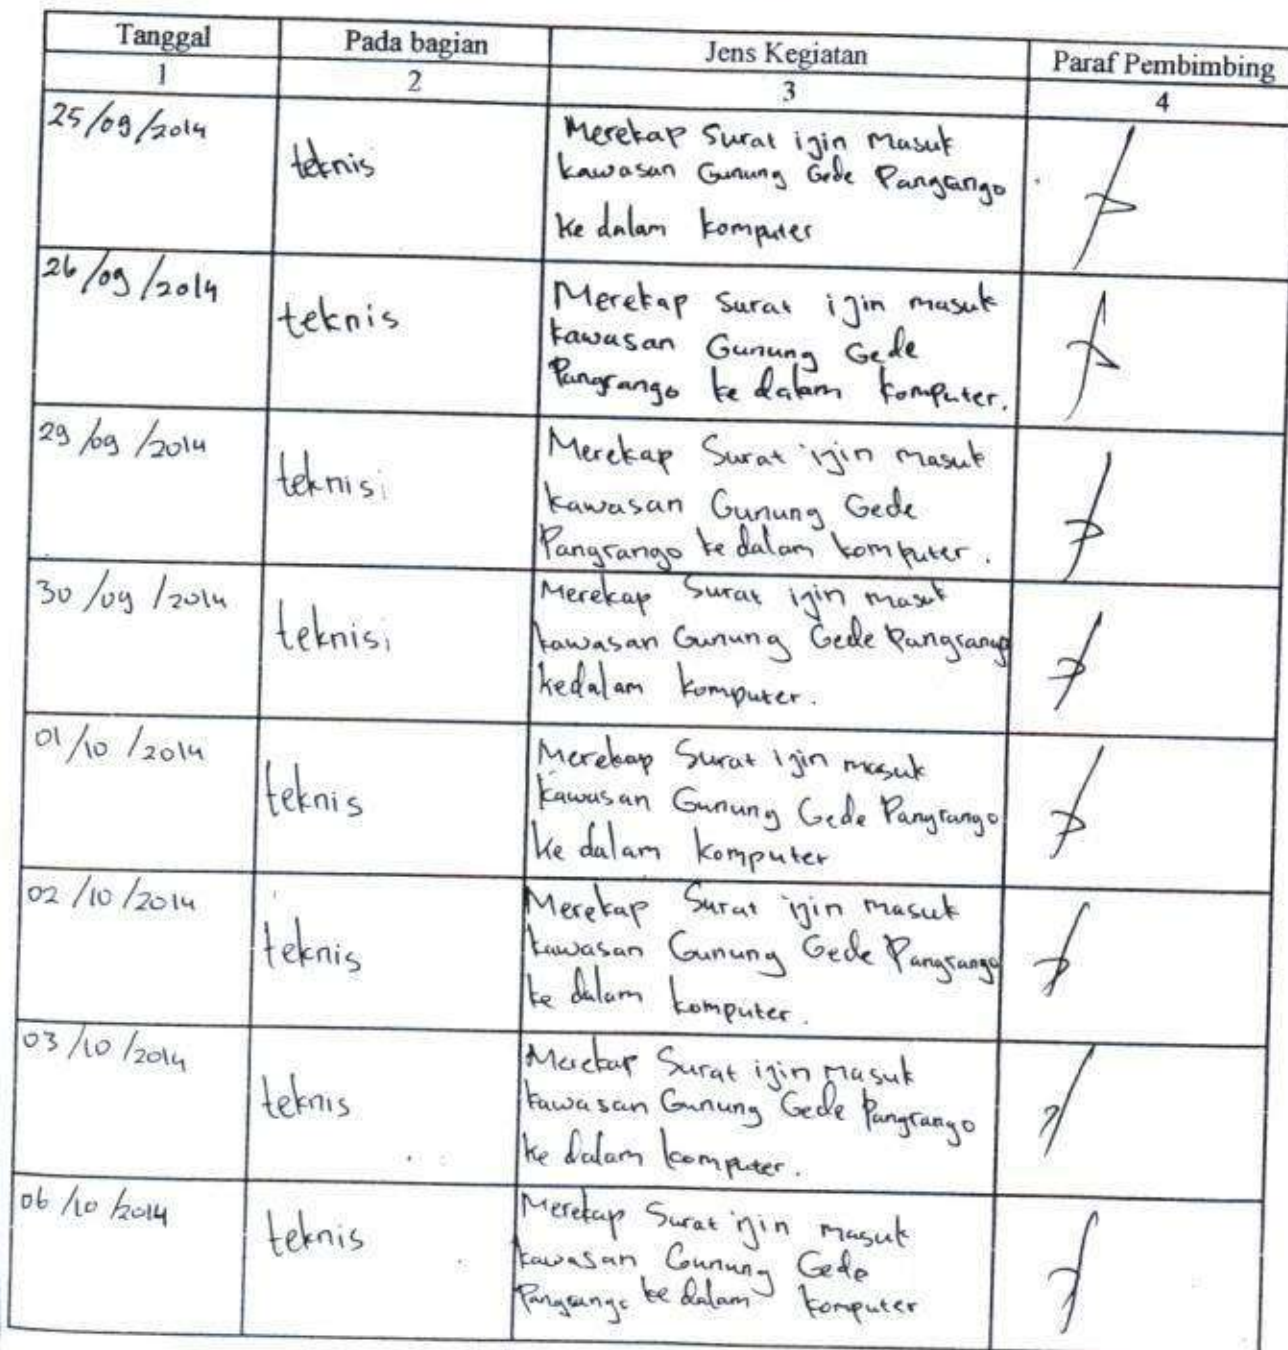 Tanggal Pada bagian Jens Kegiatan Paraf Pembimbing
1 2 3 4
25/09/2014 teknis Merekap Surat ijin masuk
kawasan Gunung Gede Pangrango
ke dalam komputer
26/09/2014 teknis Merekap surat ijin masuk
kawasan Gunung Gede
Pangrango ke dalam komputer.
29/09/2014 teknisi Merekap Surat ijin masuk
kawasan Gunung Gede
Pangrango ke dalam komputer.
30/09/2014 teknisi Merekap Surat ijin masuk
kawasan Gunung Gede Pangrango
kedalam komputer.
01/10/2014 teknis Merekap Surat ijin masuk
kawasan Gunung Gede Pangrango
ke dalam komputer
02/10/2014 teknis Merekap Surat ijin masuk
kawasan Gunung Gede Pangrango
ke dalam komputer.
03/10/2014 teknis Merekap Surat ijin masuk
kawasan Gunung Gede Pangrango
ke dalam komputer.
06/10/2014 teknis Merekap Surat ijin masuk
kawasan Gunung Gede
Pangrango ke dalam komputer